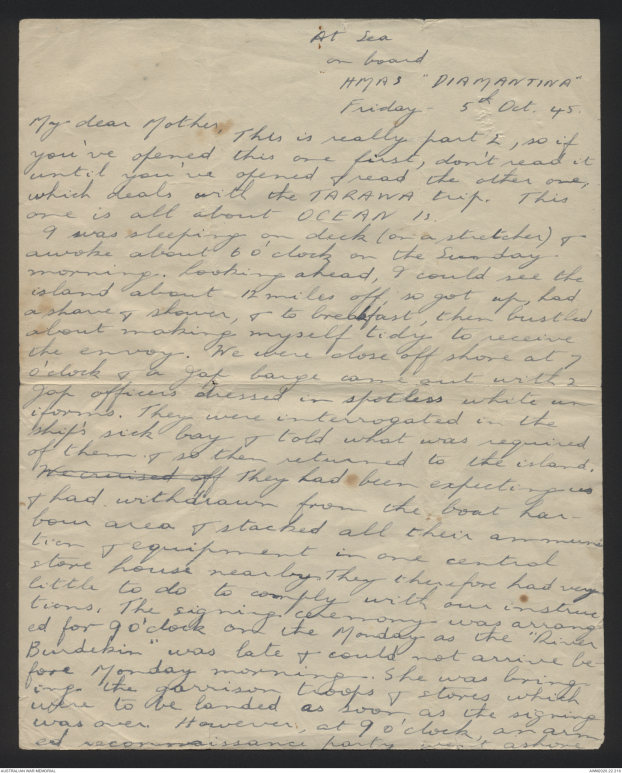 At Sea
on board
"HMAS "DIAMANTINA"
Friday - 5th Oct. 45.
My dear Mother,
This is really part 2, so if
you've opened this one first, don't read it
until you've opened & read the other one,
which deals with the TARAWA trip. This
one is all about OCEAN Is.
I was sleeping on deck (on a stretcher) &
awoke about 6 o'clock on the Sunday
morning. Looking ahead, I could see the
island about 12 miles off, so got up, had
a shave & shower, & to breakfast, then bustled
about making myself tidy to receive
the envoy. We were close off shore at 7
o'clock & a Jap barge came out with 2
Jap officers dressed in spotless white un
iforms. They were interrogated in the
ship's sick bay & told what was required
of them & so then returned to the island.
We cruised off They had been expecting us
& had withdrawn from the boat har-
bour area & stacked all their ammuni
tion & equipment in one central
store house nearby. They therefore had very
little to do to comply with our instruc
tions. The signing ceremony was arrang
ed for 9 o'clock on the Monday as the "River
Burdekin" was late & could not arrive be-
fore Monday morning. She was bring-
ing the garrison troops & stores which
were to be landed as soon as the signing
was over. However, at 9 o'clock, an arm
ed reconnaissance party went ashore
AUSTRALIAN WAR MEMORIAL